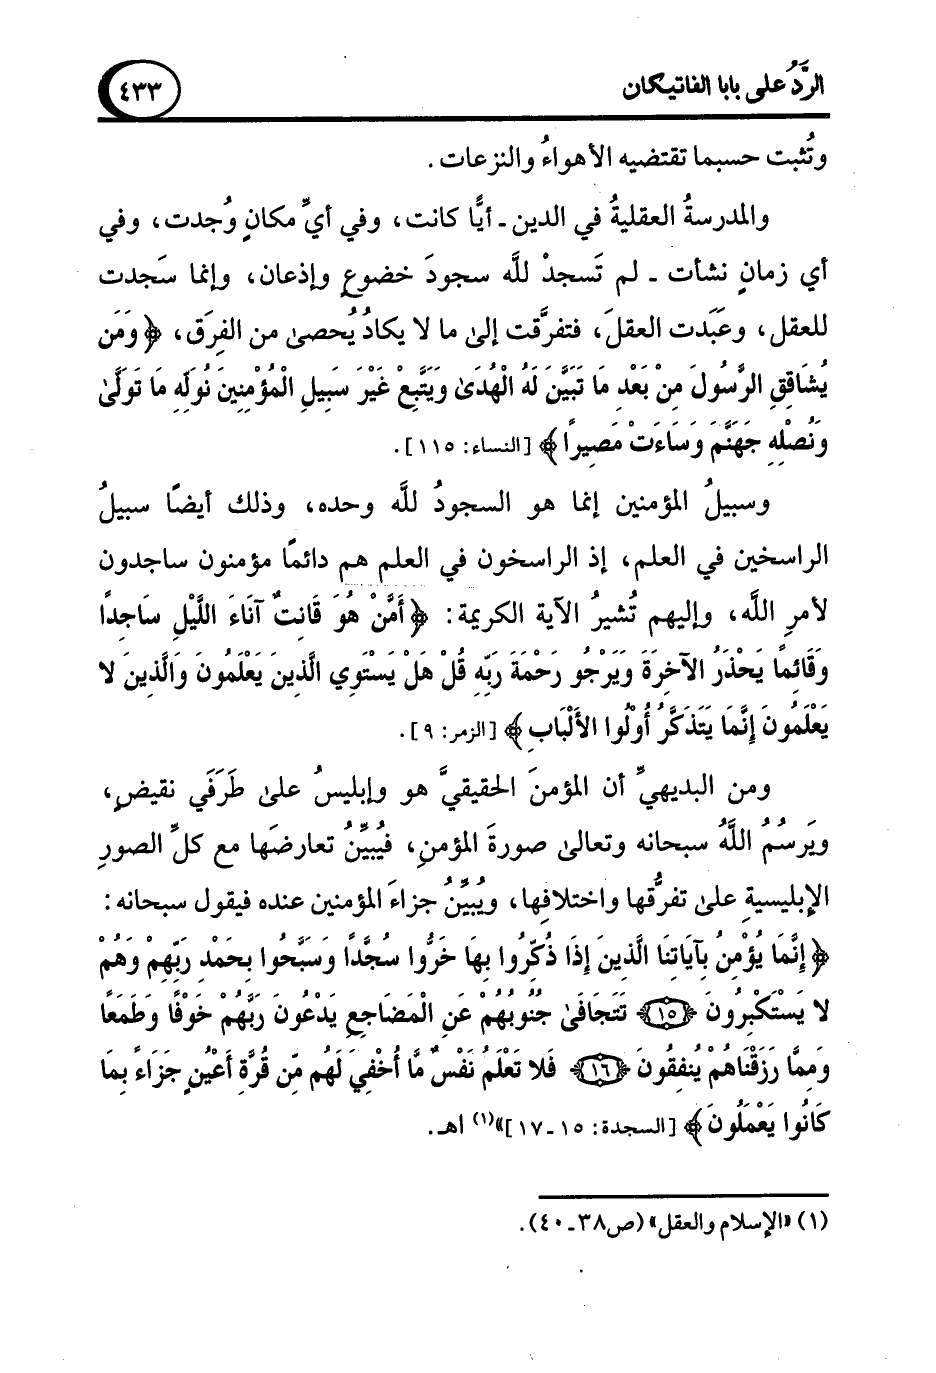 الرَّدُّ على بابا الفاتيكان
٤٣٣
وتُثبت حسبما تقتضيه الأهواءُ والنزعات.
والمدرسةُ العقليةُ في الدين ـ أيًّا كانت، وفي أيِّ مكانٍ وُجدت، وفي
أي زمانٍ نشأت ـ لم تَسجدْ للَّه سجودَ خضوعٍ وإذعان، وإنما سَجدت
للعقل، وعَبَدت العقلَ، فتفرَّقت إلىٰ ما لا يكادُ يُحصىٰ من الفِرَق، ﴿وَمَن
يُشَاقِقِ الرَّسُولَ مِنْ بَعْدِ مَا تَبَيَّنَ لَهُ الْهُدَىٰ وَيَتَّبِعْ غَيْرَ سَبِيلِ الْمُؤْمِنِينَ نُوَلِّهِ مَا تَوَلَّىٰ
وَنُصْلِهِ جَهَنَّمَ وَسَاءَتْ مَصِيرًا﴾ [النساء: ١١٥].
وسبيلُ المؤمنين إنما هو السجودُ للَّه وحده، وذلك أيضًا سبيلُ
الراسخين في العلم، إذ الراسخون في العلم هم دائمًا مؤمنون ساجدون
لأمرِ اللَّه، وإليهم تُشيرُ الآية الكريمة: ﴿أَمَّنْ هُوَ قَانِتٌ آنَاءَ اللَّيْلِ سَاجِدًا
وَقَائِمًا يَحْذَرُ الآخِرَةَ وَيَرْجُو رَحْمَةَ رَبِّهِ قُلْ هَلْ يَسْتَوِي الَّذِينَ يَعْلَمُونَ وَالَّذِينَ لا
يَعْلَمُونَ إِنَّمَا يَتَذَكَّرُ أُوْلُوا الأَلْبَابِ﴾ [الزمر: ٩].
ومن البديهيِّ أن المؤمنَ الحقيقيَّ هو وإبليسُ علىٰ طَرَفَي نقيضٍ،
ويَرسُمُ اللَّهُ سبحانه وتعالىٰ صورةَ المؤمنِ، فيُبيِّنُ تعارضَها مع كلِّ الصورِ
الإبليسيةِ علىٰ تفرُّقها واختلافِها، ويُبيِّنُ جزاءَ المؤمنين عنده فيقول سبحانه:
﴿إِنَّمَا يُؤْمِنُ بِآيَاتِنَا الَّذِينَ إِذَا ذُكِّرُوا بِهَا خَرُّوا سُجَّدًا وَسَبَّحُوا بِحَمْدِ رَبِّهِمْ وَهُمْ
لا يَسْتَكْبِرُونَ ﴿١٥﴾ تَتَجَافَىٰ جُنُوبُهُمْ عَنِ الْمَضَاجِعِ يَدْعُونَ رَبَّهُمْ خَوْفًا وَطَمَعًا
وَمِمَّا رَزَقْنَاهُمْ يُنفِقُونَ ﴿١٦﴾ فَلا تَعْلَمُ نَفْسٌ مَّا أُخْفِيَ لَهُم مِّن قُرَّةِ أَعْيُنٍ جَزَاءً بِمَا
كَانُوا يَعْمَلُونَ﴾ [السجدة: ١٥ـ١٧]»(١) اهـ.
(١) «الإسلام والعقل» (ص٣٨ـ٤٠).